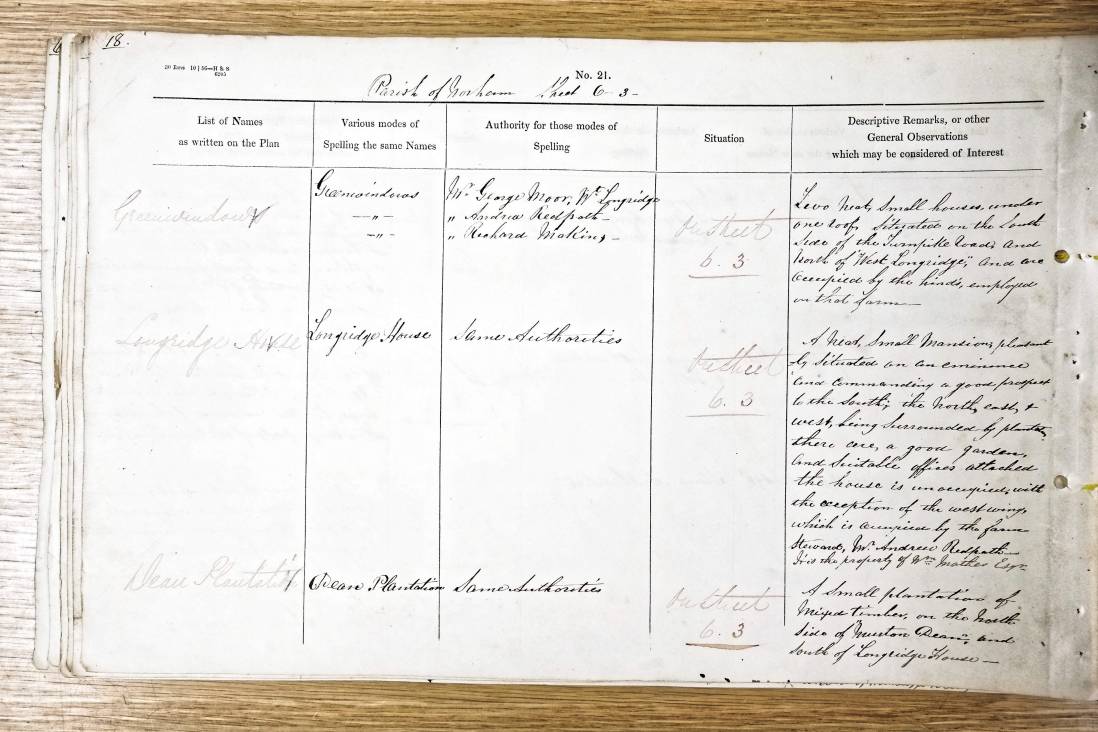 6
18.
20 Bows 10 | 56—H & S
6205
No. 21.
Parish of Norham Sheet 6 3 -
List of Names
as written on the Plan
Various modes of
Spelling the same Names
Authority for those modes of
Spelling
Situation
Descriptive Remarks, or other
General Observations
which may be considered of Interest
Greenwindows
Greenwindows
— " —
— " —
Mr. George Moor, Wt. Longridge
" Andrew Redpath —
" Richard Makins —
On Sheet
6. 3
Two neat, Small houses, under
one roof, Situated on the South
Side of the Turnpike Road, and
North of "West Longridge", and are
Occupied by the hinds, employed
on that farm —
Longridge House
Longridge House
Same Authorities
On Sheet
6. 3
A Neat, Small Mansion, pleasant
ly Situated on an eminence
and commanding a good prospect
to the South; the North, east, &
west, being Surrounded by plantatn
there are, a good garden,
and Suitable offices attached
the house is unoccupied, with
the exception of the west wing,
which is occupied by the farm
Steward, Mr. Andrew Redpath —
It is the property of Wm. Mather Esqr.
Dean Plantation
Dean Plantation
Same Authorities
On Sheet
6. 3
A Small plantation of
Mixed timber, on the North
Side of "Murton Dean", and
South of Longridge House —